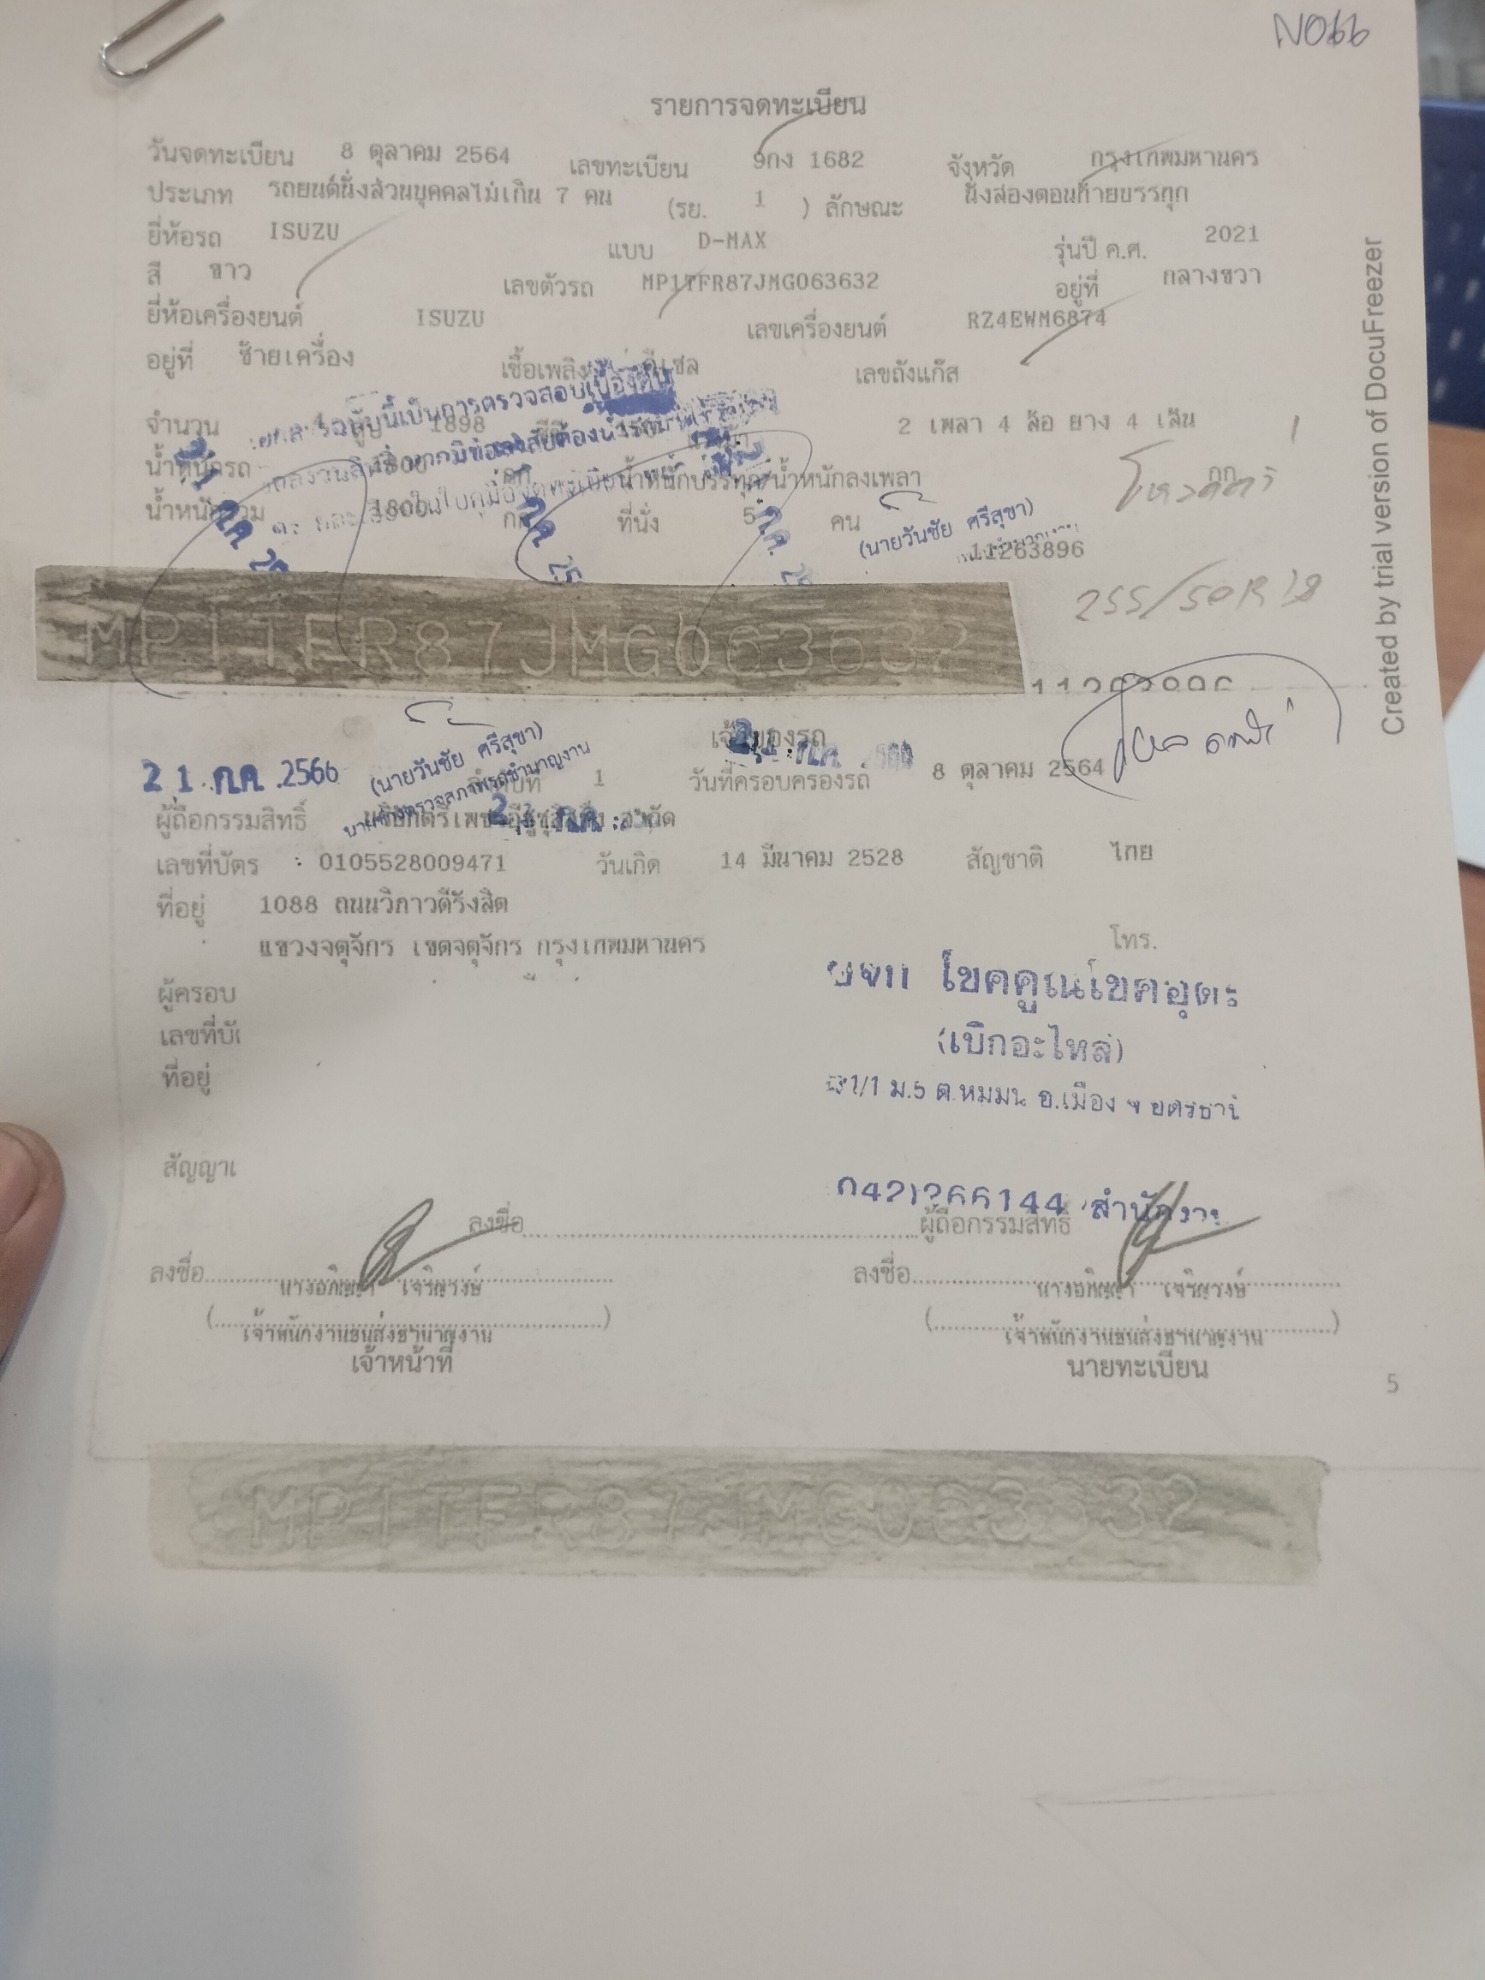 NO66
รายการจดทะเบียน
วันจดทะเบียน 8 ตุลาคม 2564 เลขทะเบียน 9กง 1682 จังหวัด กรุงเทพมหานคร
ประเภท รถยนต์นั่งส่วนบุคคลไม่เกิน 7 คน (รย. 1 ) ลักษณะ นั่งสองตอนท้ายบรรทุก
ยี่ห้อรถ ISUZU แบบ D-MAX รุ่นปี ค.ศ. 2021
สี ขาว เลขตัวรถ MP1TFR87JMG063632 อยู่ที่ กลางขวา
ยี่ห้อเครื่องยนต์ ISUZU เลขเครื่องยนต์ RZ4EWM6874
อยู่ที่ ซ้ายเครื่อง เชื้อเพลิง ดีเซล เลขถังแก๊ส
จำนวน 4 สูบ 1898 2 เพลา 4 ล้อ ยาง 4 เส้น
น้ำหนักรถ 1800 กก. น้ำหนักบรรทุก/น้ำหนักลงเพลา กก.
น้ำหนักรวม 1800 กก. ที่นั่ง 5 คน
(นายวันชัย ศรีสุขา)
11263896
255/50R18
MP1TFR87JMG063632
เจ้าของรถ
21 ก.ค. 2566
(นายวันชัย ศรีสุขา)
นายช่างตรวจสภาพรถชำนาญงาน
ลำดับที่ 1 วันที่ครอบครองรถ 8 ตุลาคม 2564
ผู้ถือกรรมสิทธิ์
เลขที่บัตร : 0105528009471 วันเกิด 14 มีนาคม 2528 สัญชาติ ไทย
ที่อยู่ 1088 ถนนวิภาวดีรังสิต
แขวงจตุจักร เขตจตุจักร กรุงเทพมหานคร โทร.
ผู้ครอบ
เลขที่บั
ที่อยู่
โชคคูณโชค
(เบิกอะไหล่)
ม.5 อ.เมือง
สัญญาเ
ลงชื่อ ผู้ถือกรรมสิทธิ์
ลงชื่อ ลงชื่อ
นางอภิญญา เจริญวงษ์ นางอภิญญา เจริญวงษ์
เจ้าพนักงานขนส่งชำนาญงาน เจ้าพนักงานขนส่งชำนาญงาน
เจ้าหน้าที่ นายทะเบียน
5
MP1TFR87JMG063632
Created by trial version of DocuFreezer